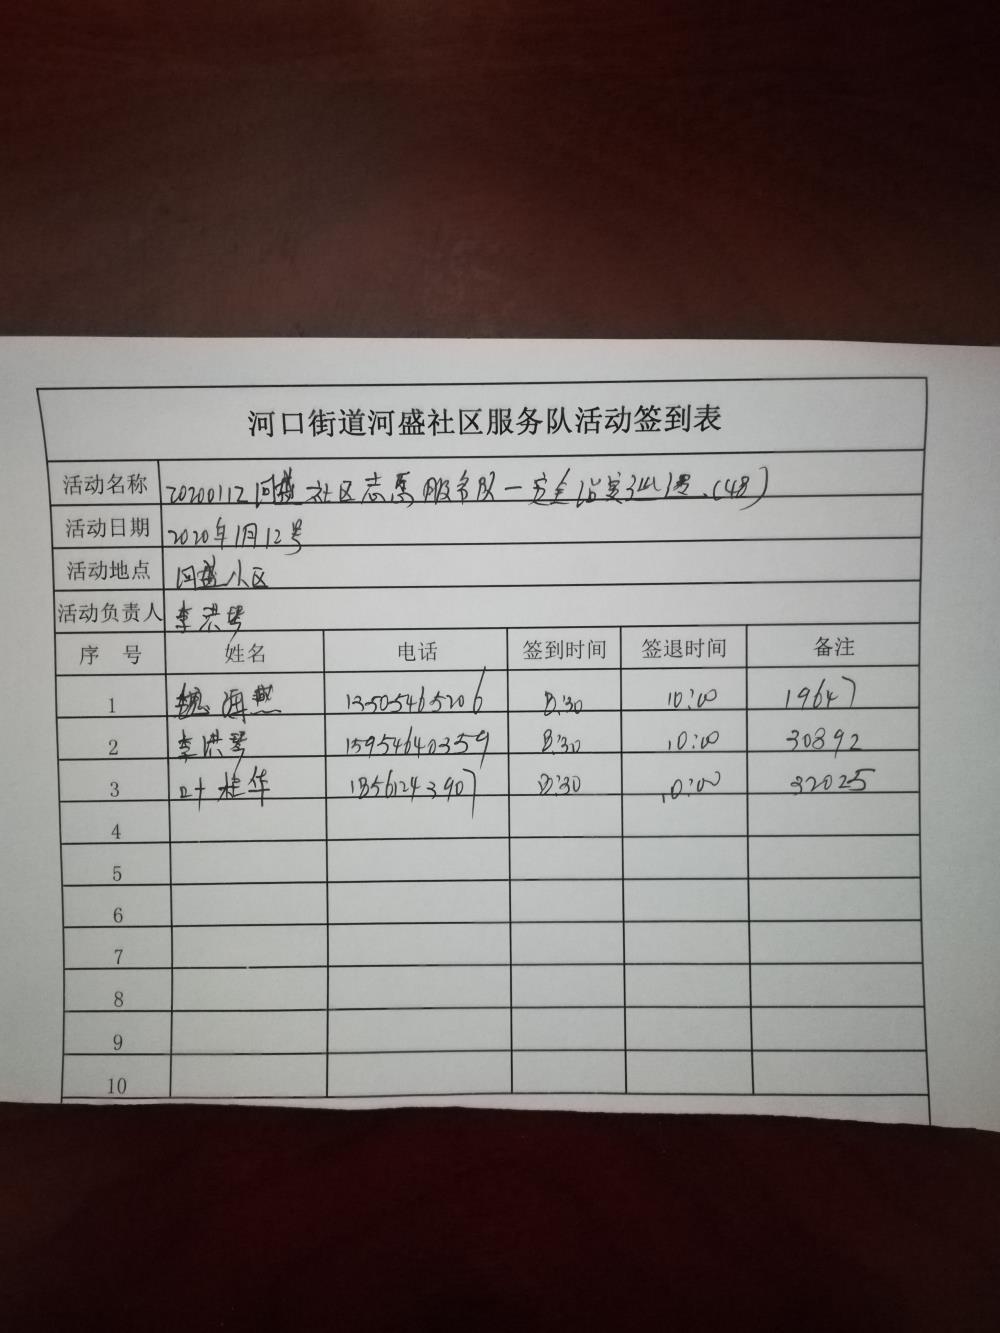 河口街道河盛社区服务队活动签到表
活动名称 20200112河盛社区志愿服务队一安全 (48)
活动日期 2020年1月12号
活动地点 河盛小区
活动负责人 李洪琴
序 号 姓名 电话 签到时间 签退时间 备注
1 魏海燕 13505465206 8:30 10:00 19647
2 李洪琴 15954640359 8:30 10:00 30892
3 叶桂华 18561243907 8:30 10:00 32025
4
5
6
7
8
9
10